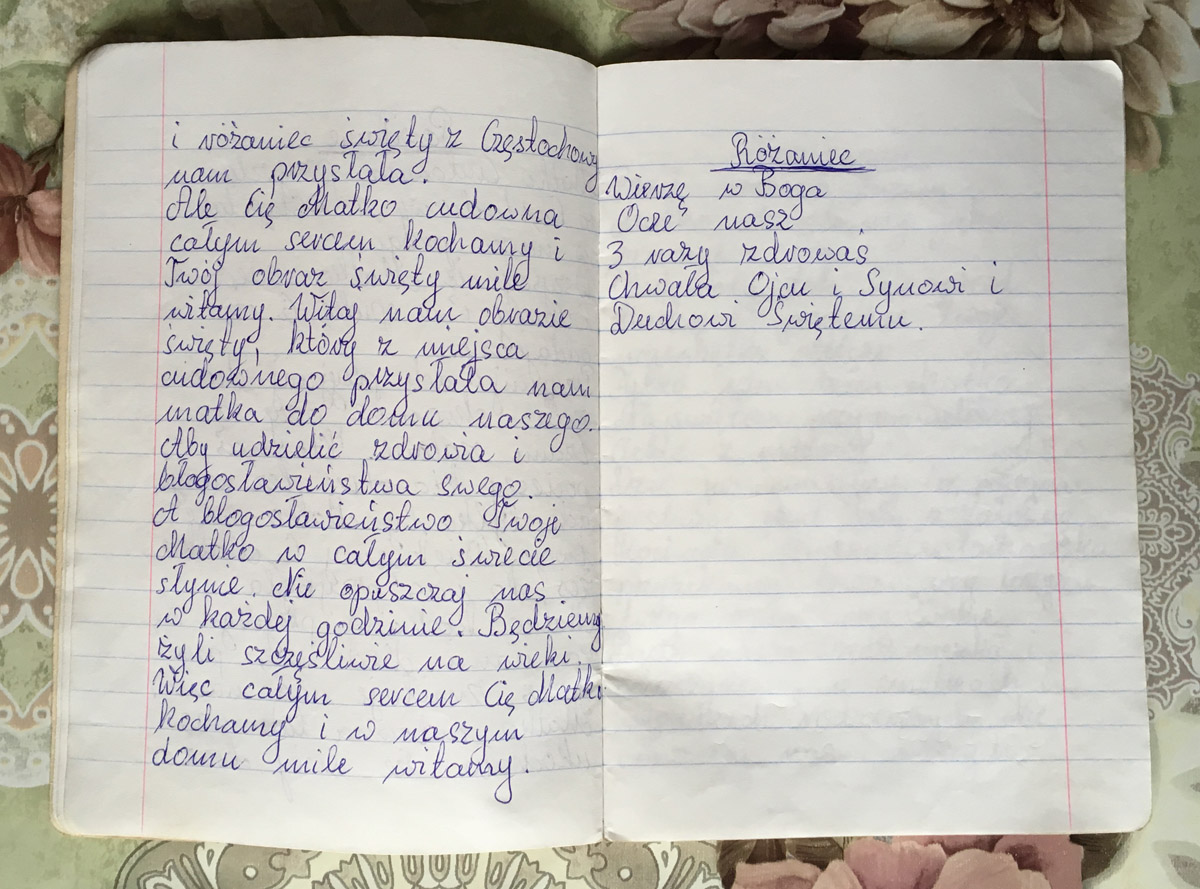 i różaniec święty z Częstochowy
nam przysłała.
Ale Cię Matko cudowna
całym sercem kochamy i
Twój obraz święty mile
witamy. Witaj nam obrazie
święty, który z miejsca
cudownego przysłała nam
matka do domu naszego.
Aby udzielić zdrowia i
błogosławieństwa swego.
A błogosławieństwo Twoje
Matko w całym świecie
słynie. Nie opuszczaj nas
w każdej godzinie. Będziemy
żyli szczęśliwie na wieki.
Więc całym sercem Cię Matko
kochamy i w naszym
domu mile witamy.
Różaniec
Wierzę w Boga
Ocze nasz
3 razy zdrowaś
Chwała Ojcu i Synowi i
Duchowi Świętemu.